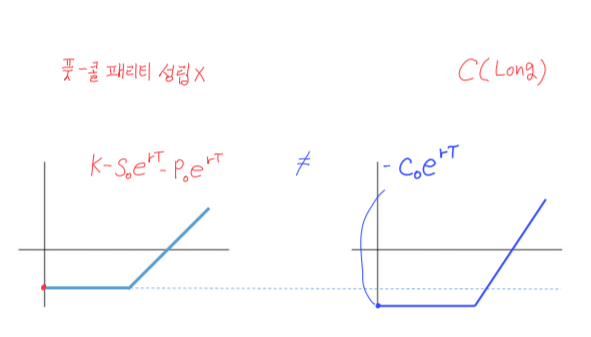 풋-콜 패리티 성립 X
C(Long)
K-S₀e^{rT}-P₀e^{rT} ≠ -C₀e^{rT}